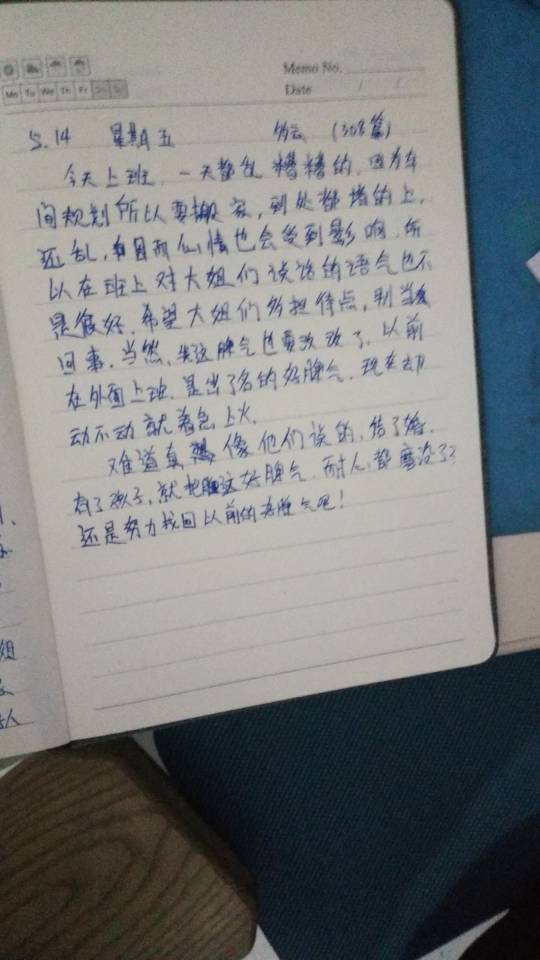 Memo No.
Mo Tu We Th Fr Sa Su
Date / /
5.14 星期五 多云 (308篇)
今天上班,一天都乱糟糟的,因为车
间规划所以要搬家,到处都堵的上,
还乱,因而心情也会受到影响,所
以在班上对大姐们说话的语气也不
是很好,希望大姐们多担待点,别当
回事,当然,我这脾气也要改改了,以前
在外面上班,是出了名的好脾气,现在动
动不动就着急上火.
难道真像他们说的,结了婚,
有了孩子,就把这好脾气,耐人,都磨没了?
还是努力找回以前的好脾气吧!
组
人